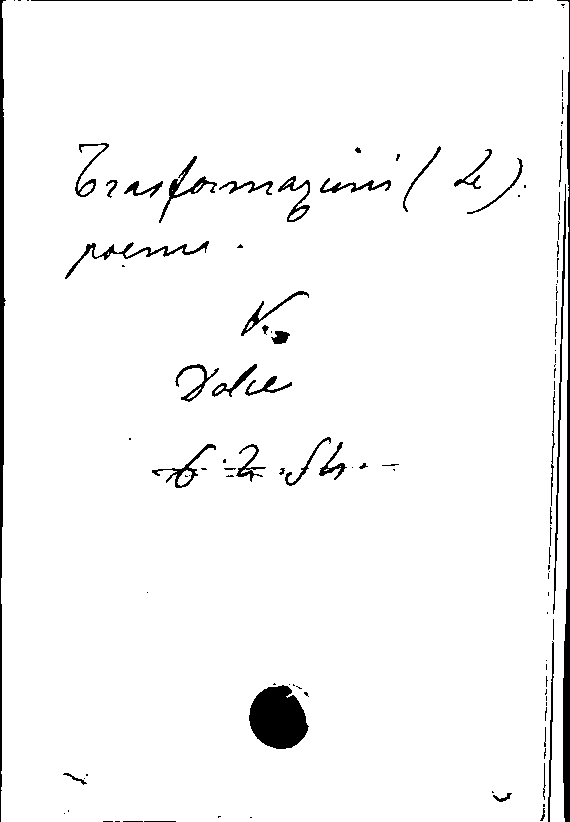 Trasformazioni (Le).
poema.
V.
Dolce